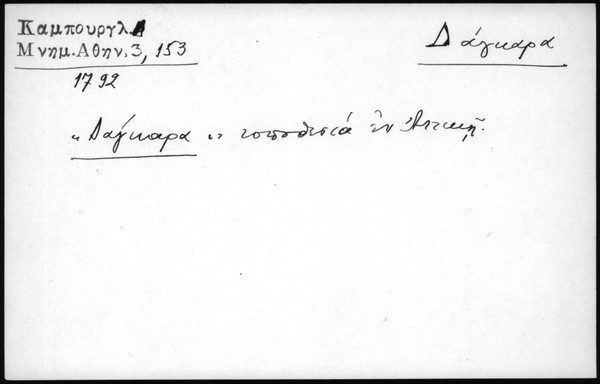 Καμπουργλ.
Μνημ.Αθην.3, 153
Δάγκαρα
1792
"Δάγκαρα" τοποθεσία ἐν Ἀττικῇ.